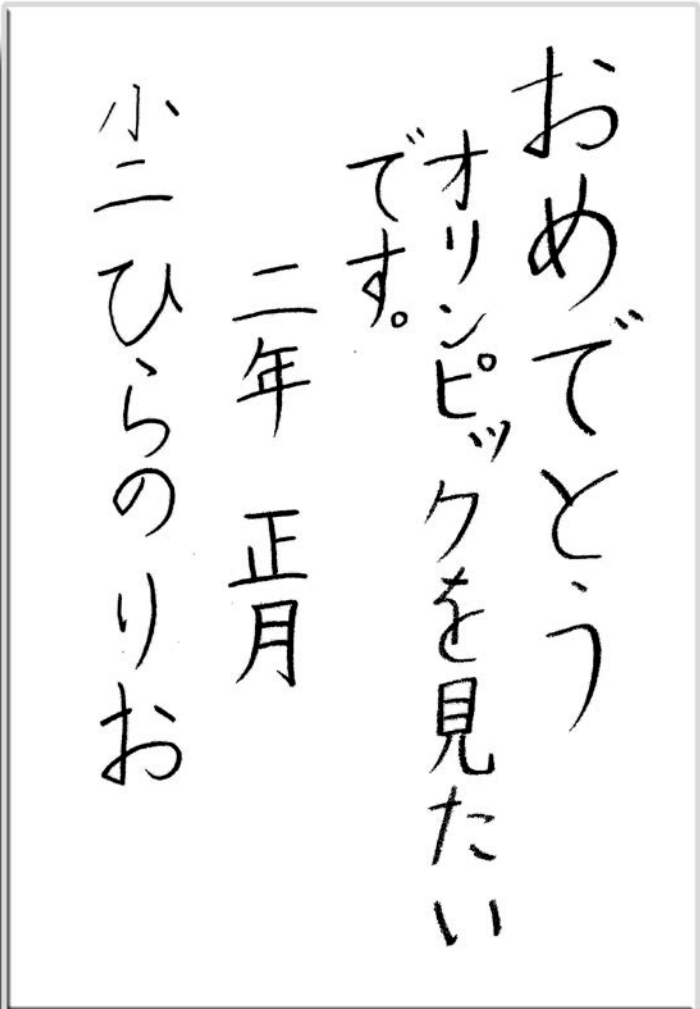 おめでとう
オリンピックを見たい
です。
二年 正月
小二 ひらの りお